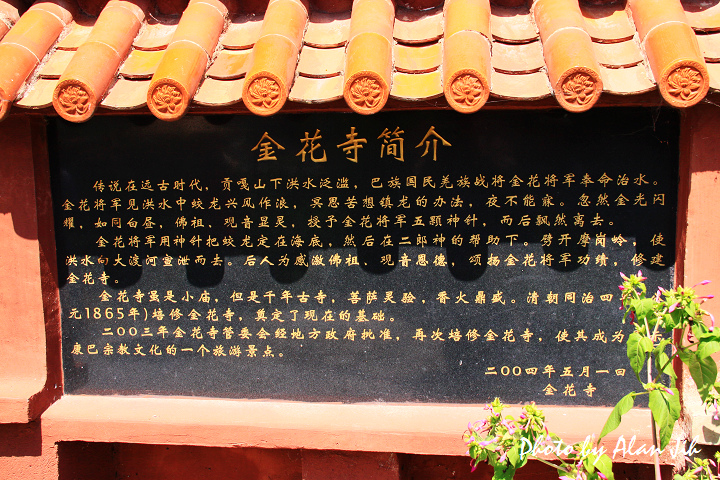 金花寺简介
传说在远古时代，贡嘎山下洪水泛滥，巴族国民羌族战将金花将军奉命治水。
金花将军见洪水中蛟龙兴风作浪，冥思苦想镇龙的办法，夜不能寐。忽然金光闪
耀，如同白昼，佛祖、观音显灵，授予金花将军五颗神针，而后飘然离去。
金花将军用神针把蛟龙定在海底，然后在二郎神的帮助下。劈开摩岗岭，使
洪水向大渡河宣泄而去。后人为感激佛祖、观音恩德，颂扬金花将军功绩，修建
金花寺。
金花寺虽是小庙，但是千年古寺，菩萨灵验，香火鼎盛。清朝同治四
元1865年)培修金花寺，奠定了现在的基础。
二00三年金花寺管委会经地方政府批准，再次培修金花寺，使其成为
康巴宗教文化的一个旅游景点。
二00四年五月一日
金花寺
Photo by Alan Jih